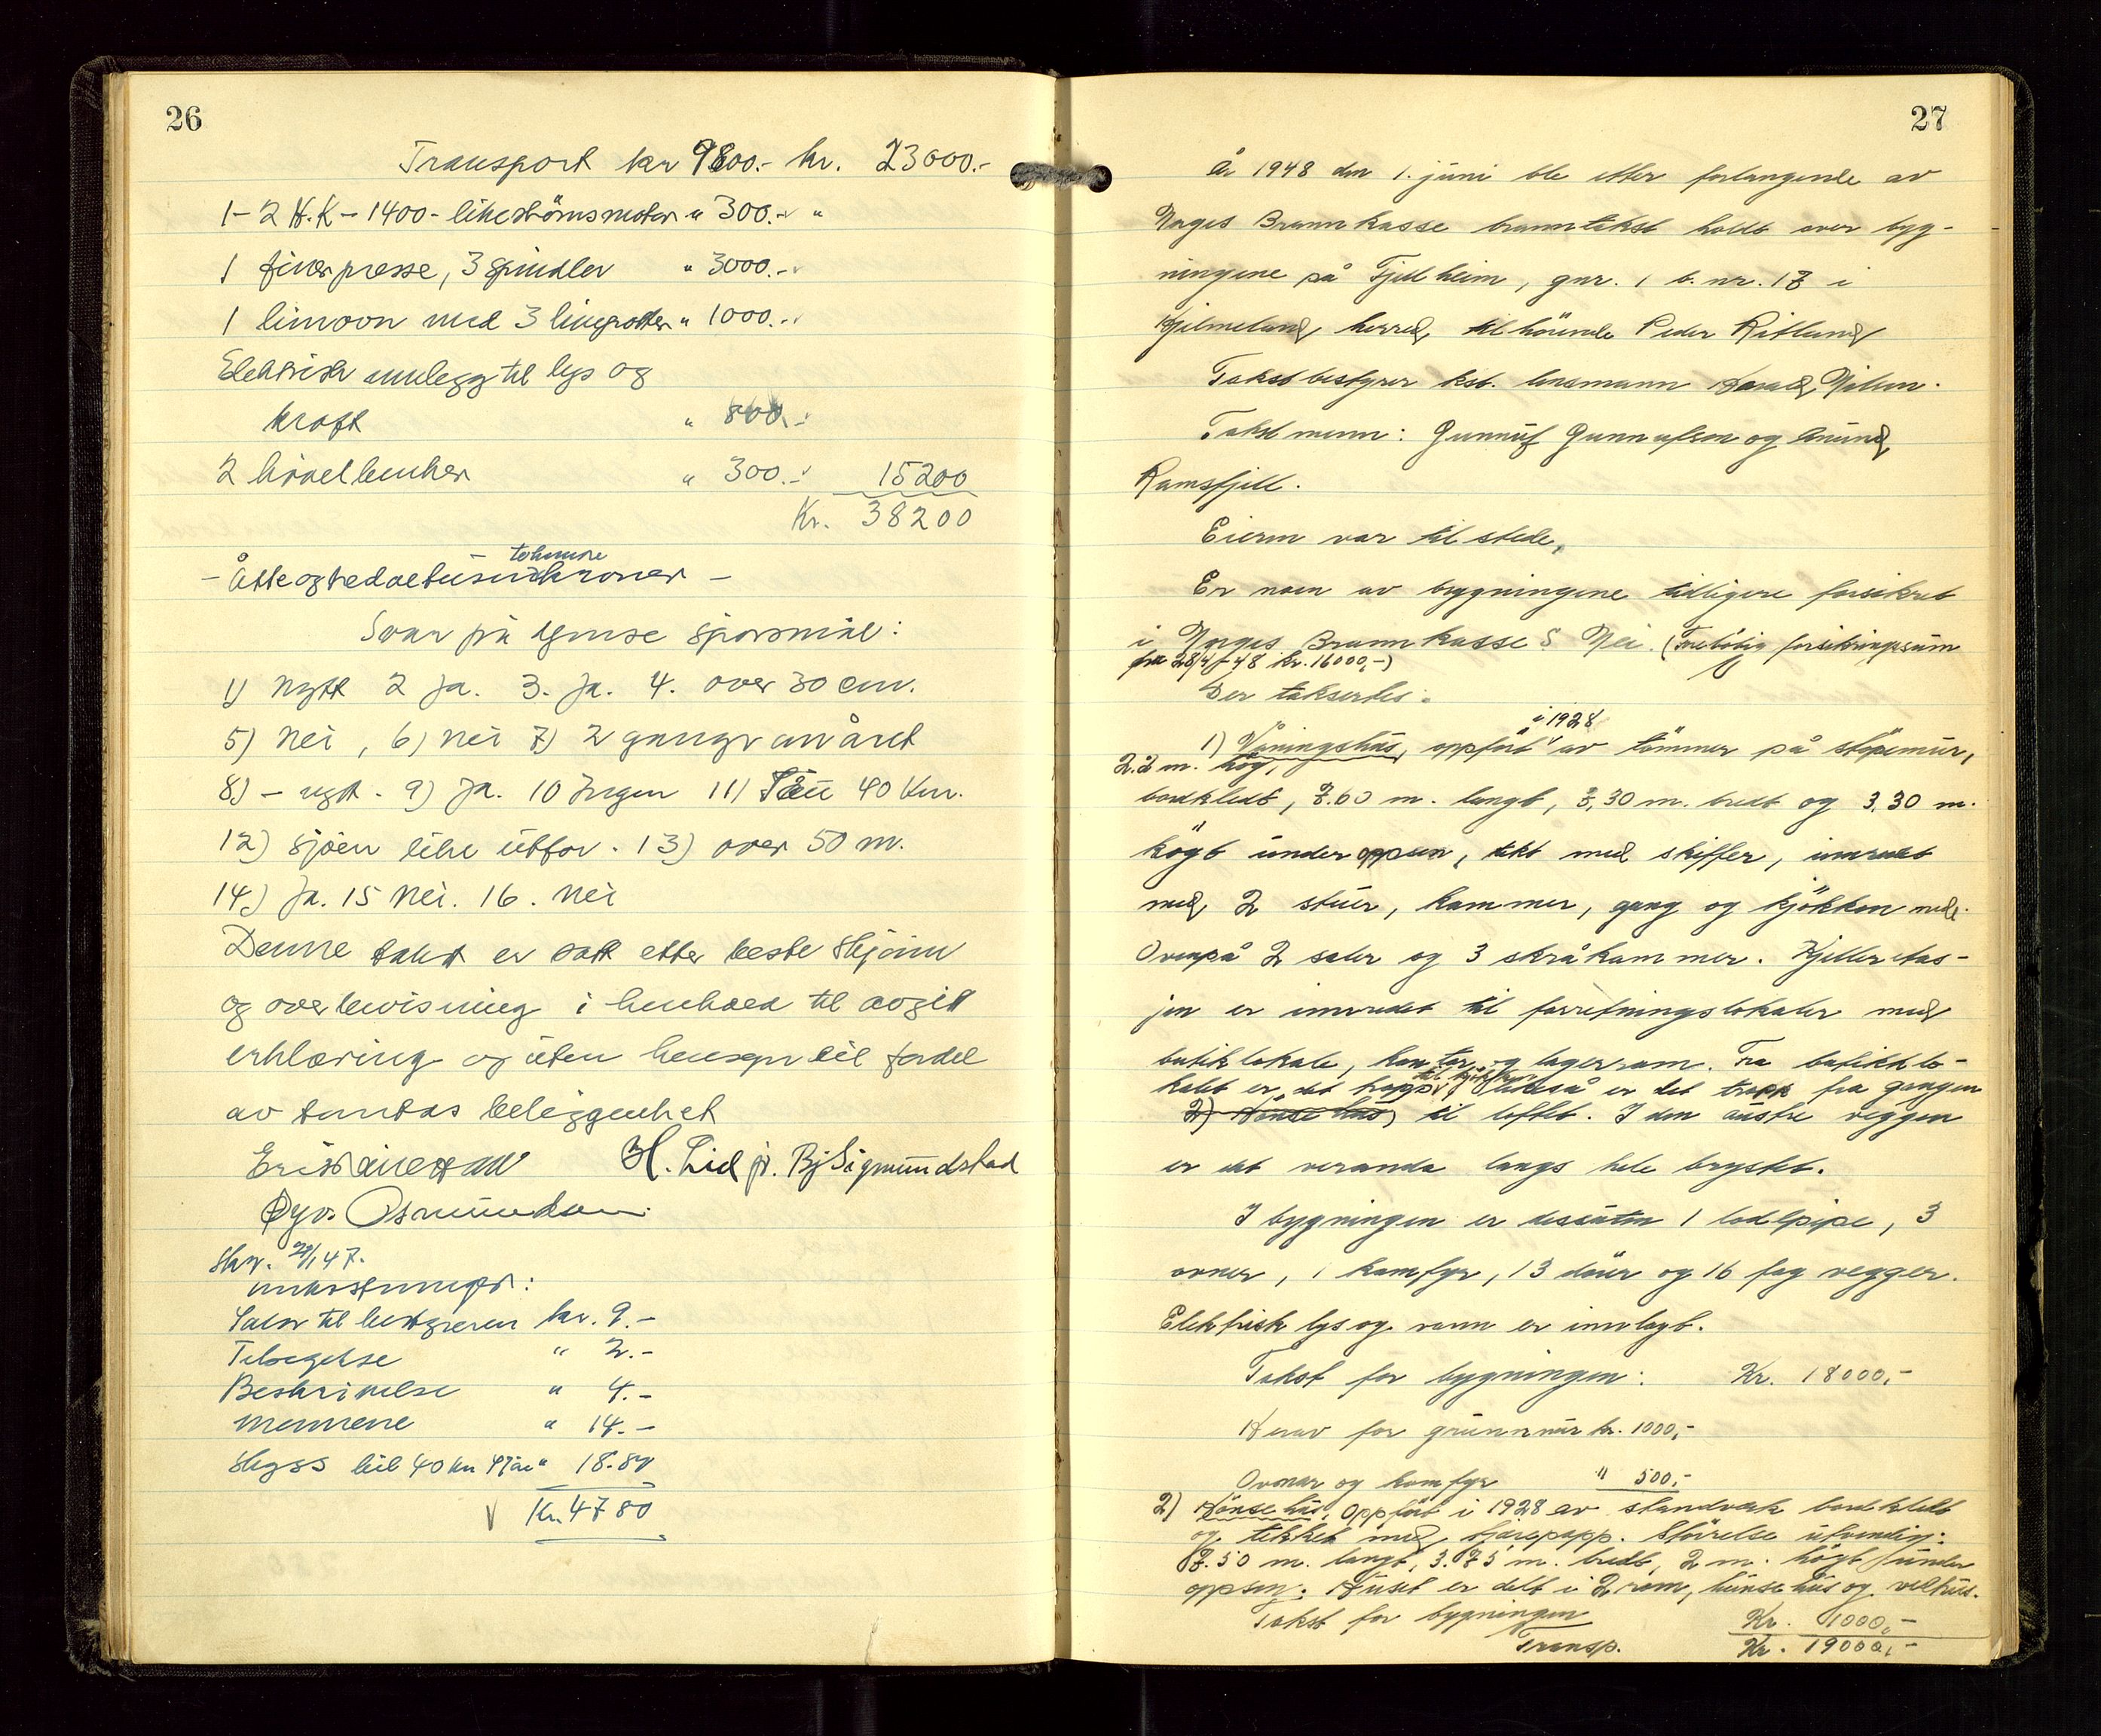 26
Transport kr 9800.- kr. 23000.-
1 - 2 H.K - 1400 - likeströmsmotor " 300.- "
1 finerpresse, 3 spindler " 3000.-
1 limovn med 3 limgrotter " 1000.-
Elektrisk innlegg til lys og
kraft " 800.-
2 hövelbenker " 300.- 15200
Kr. 38200
- Åtteogtredvetusen tohundre kroner -
Svar på spörsmål:
1) Nytt 2 Ja. 3. Ja. 4. over 30 cm.
5) Nei, 6) Nei 7) 2 ganger om året
8) - nytt. 9) Ja. 10 Ingen 11) Tau 40 km.
12) Sjöen like utfor. 13) over 50 m.
14) Ja. 15 Nei. 16. Nei
Denne takst er satt etter beste skjönn
og overbevisning i henhold til avgitt
erklæring og uten hensyn til fordel
av tomtas beleggenhet
H. Lid jr. Bj Sigmundstad
Øyv. Osmundsen
Skr. 29/1 47.
Omkostninger:
Salær til bestyreren kr. 9.-
Tilsigelse " 2.-
Beskrivelse " 4.-
Mennene " 14.-
Skyss bil 40 km " 18.80
Kr. 47 80
27
År 1948 den 1. juni ble etter forlangende av
Norges Brannkasse branntakst holdt over byg-
ningene på Fjellheim, gnr. 1 b.nr. 17 i
Hjelmeland herred tilhörende Peder Ritland
Takstbestyrer kst. lensmann Harald Nilsen.
Takstmenn: Gunnulf Gunnulfsen og Anund
Ramsfjell.
Eieren var til stede.
Er noen av bygningene tidligere forsikret
i Norges Brannkasse? Nei. (Foreløbig forsikringssum
fra 28/4-48 kr. 16000,-)
Der taksertes:
1) Våningshus, oppfört i 1928 av tömmer på støpemur,
2.2 m. hög,
bordkledt, 7.60 m. langt, 7,30 m. bredt og 3.30 m.
högt under oppsen, tekt med skiffer, innredet
med 2 stuer, kammer, gang og kjökken nede.
Ovenpå 2 saler og 3 skråkammer. Kjelleretas-
jen er innredet til forretningslokaler med
butiklokale, kontor og lagerrom. Fra butiklo-
kalet er det trapp til kjökken, likeså er det trapp fra gangen
2) Hönsehus, til loftet. I den austre veggen
er det veranda langs hele brystet.
I bygningen er dessuten 1 lodlpipe, 3
ovner, 1 komfyr, 13 dörer og 16 fag vegger.
Elektrisk lys og vann er innlagt.
Takst for bygningen: Kr. 18000,-
Herav for grunnmur kr. 1000,-
Ovner og komfyr " 500,-
2) Hönsehus. Oppfört i 1928 av standverk bordkledt
og tekket med tjærepapp. Störrelse utvendig:
7.50 m. langt, 3.75 m. bredt, 2 m. högt under
oppsen. Huset er delt i 2 rom, hönsehus og vedhus.
Takst for bygningen Kr. 1000,-
Transp. Kr. 19000,-